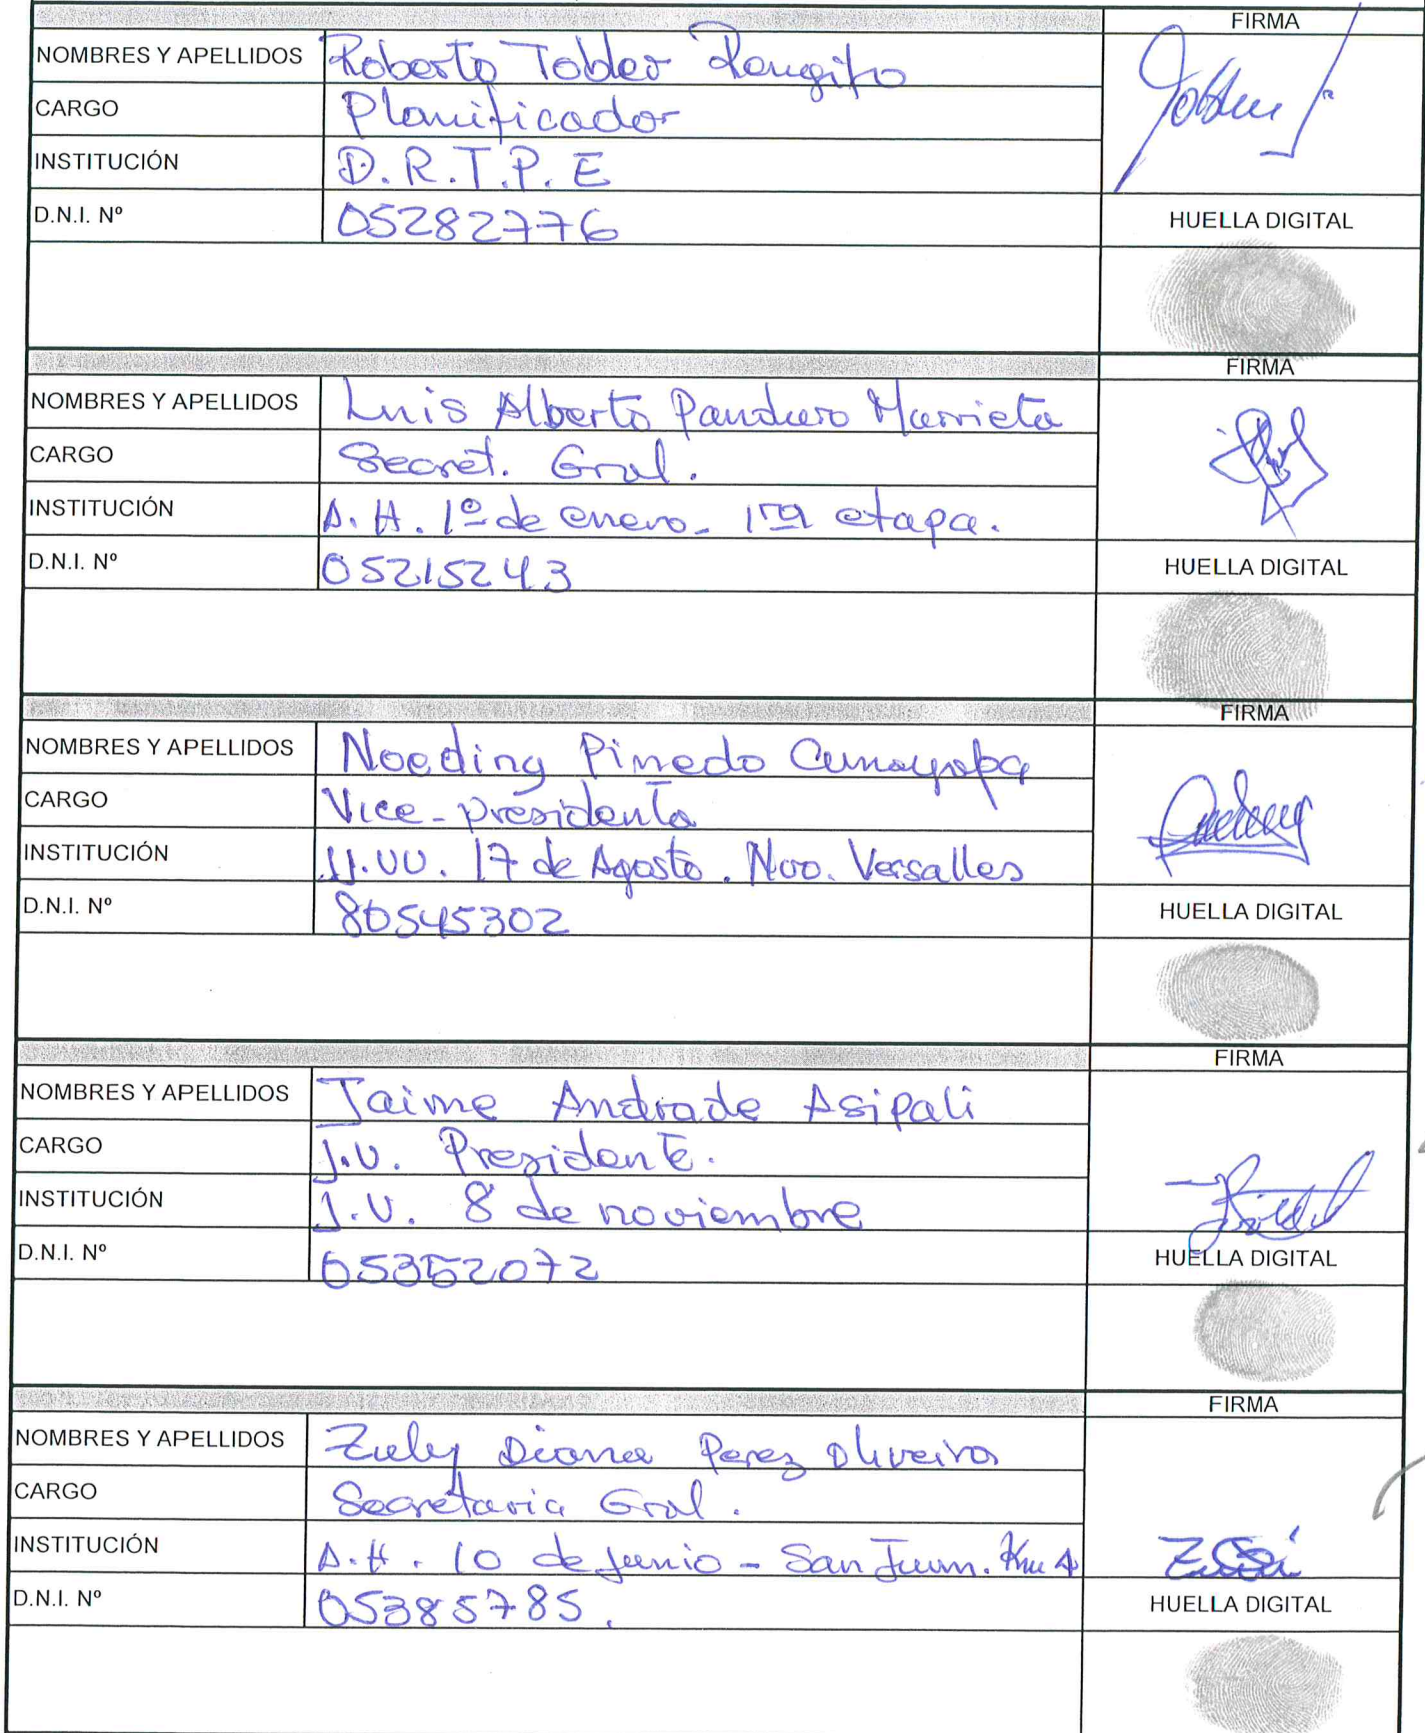 FIRMA
NOMBRES Y APELLIDOS Roberto Tobler Rengifo
CARGO Planificador
INSTITUCIÓN D.R.T.P.E
D.N.I. Nº 05282776
HUELLA DIGITAL
FIRMA
NOMBRES Y APELLIDOS Luis Alberto Panduro Murrieta
CARGO Secret. Gral.
INSTITUCIÓN A.H. 1º de enero - 1ra etapa.
D.N.I. Nº 05215243
HUELLA DIGITAL
FIRMA
NOMBRES Y APELLIDOS Noeding Pinedo
CARGO Vice-presidenta
INSTITUCIÓN JJ.VV. 17 de Agosto. Nvo. Versalles
D.N.I. Nº 80545302
HUELLA DIGITAL
FIRMA
NOMBRES Y APELLIDOS Jaime Andrade Asipali
CARGO J.V. Presidente.
INSTITUCIÓN J.V. 8 de noviembre
D.N.I. Nº 05352072
HUELLA DIGITAL
FIRMA
NOMBRES Y APELLIDOS Zuly Diana Perez Oliveira
CARGO Secretaria Gral.
INSTITUCIÓN A.H. 10 de junio - San Juan. Km 4
D.N.I. Nº 05385785.
HUELLA DIGITAL